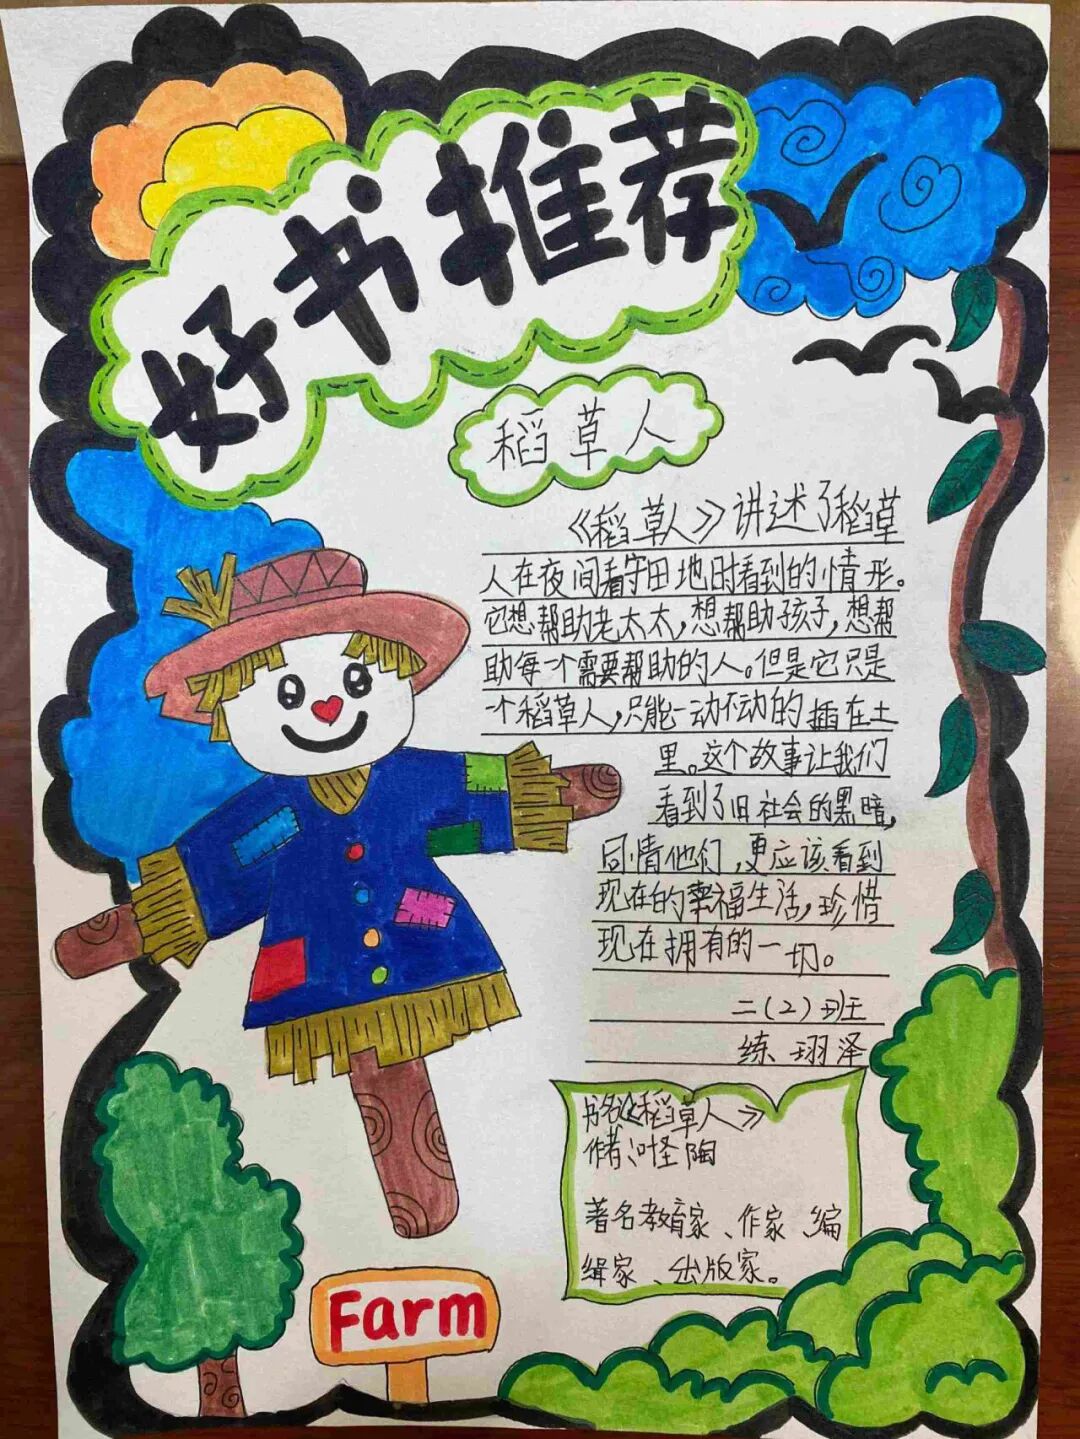 好书推荐
稻草人
《稻草人》讲述了稻草
人在夜间看守田地时看到的情形。
它想帮助老太太，想帮助孩子，想帮
助每一个需要帮助的人。但是它只是
一个稻草人，只能一动不动的插在土
里。这个故事让我们
看到了旧社会的黑暗，
同情他们，更应该看到
现在的幸福生活，珍惜
现在拥有的一切。
二（2）班
练珝泽
书名：《稻草人》
作者：叶圣陶
著名教育家、作家、编
辑家、出版家。
Farm